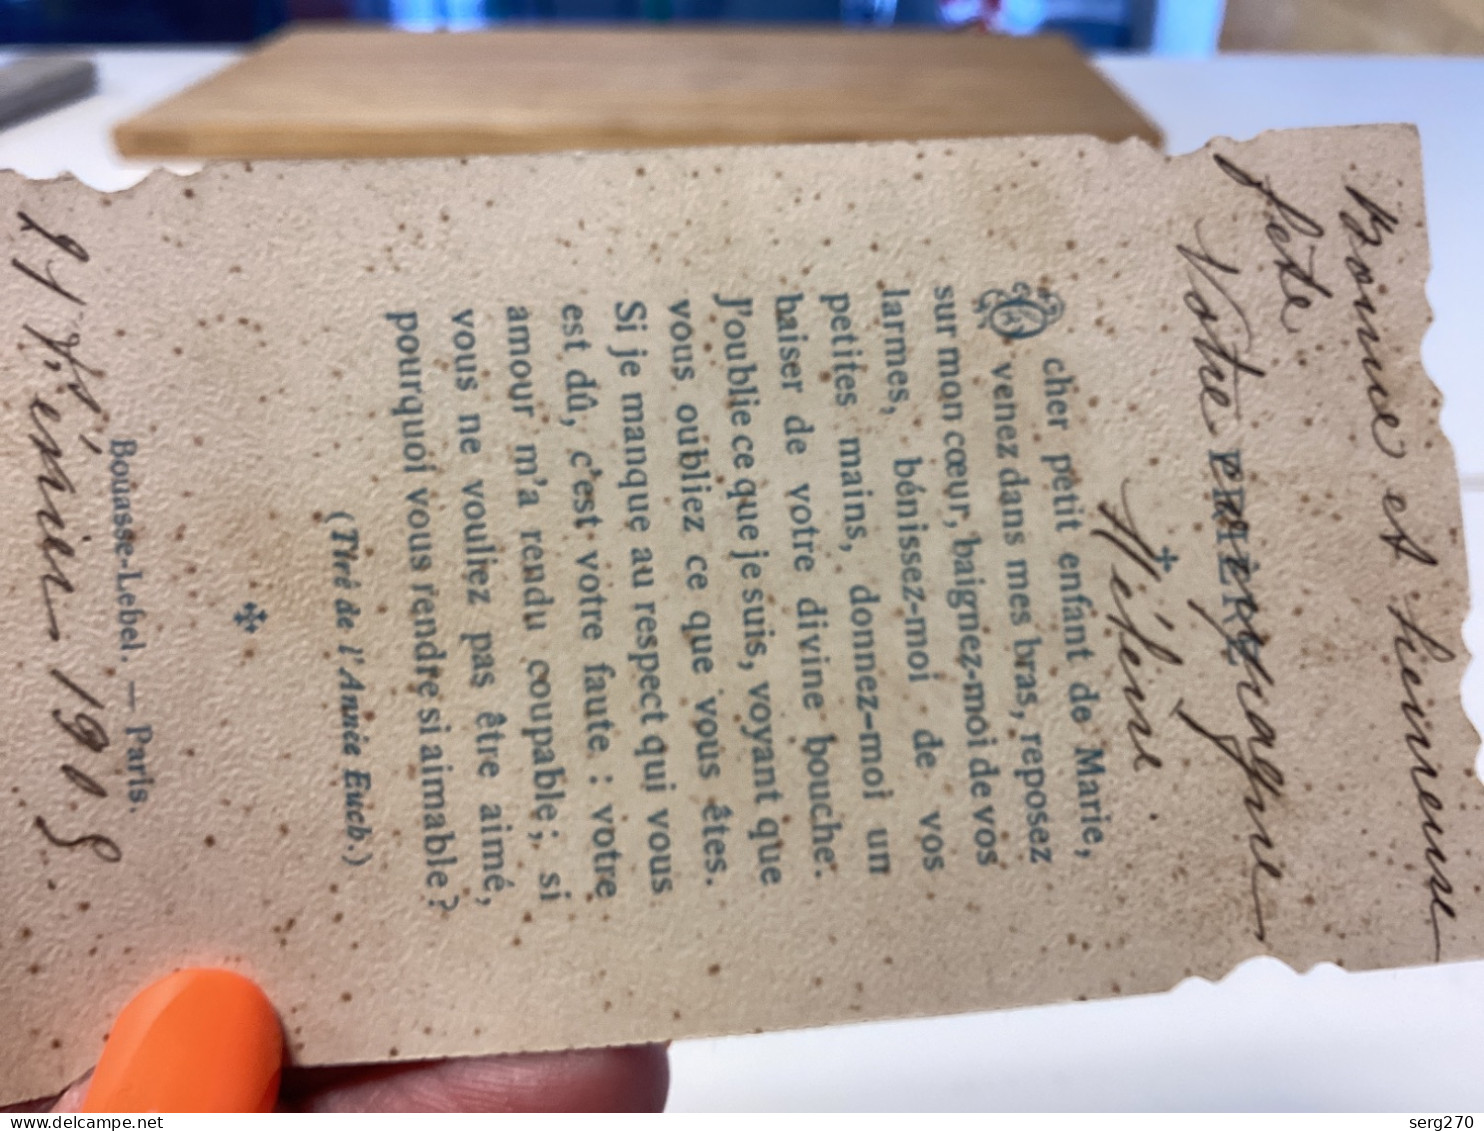 Bonne et heureuse
fête
Votre compagne
PRIÈRE
Hélène
O cher petit enfant de Marie,
venez dans mes bras, reposez
sur mon cœur, baignez-moi de vos
larmes, bénissez-moi de vos
petites mains, donnez-moi un
baiser de votre divine bouche.
J'oublie ce que je suis, voyant que
vous oubliez ce que vous êtes.
Si je manque au respect qui vous
est dû, c'est votre faute : votre
amour m'a rendu coupable ; si
vous ne vouliez pas être aimé,
pourquoi vous rendre si aimable ?
(Tiré de l'Année Euch.)
Bouasse-Lebel. — Paris.
21 Février 1905
© delcampe.net
serg270